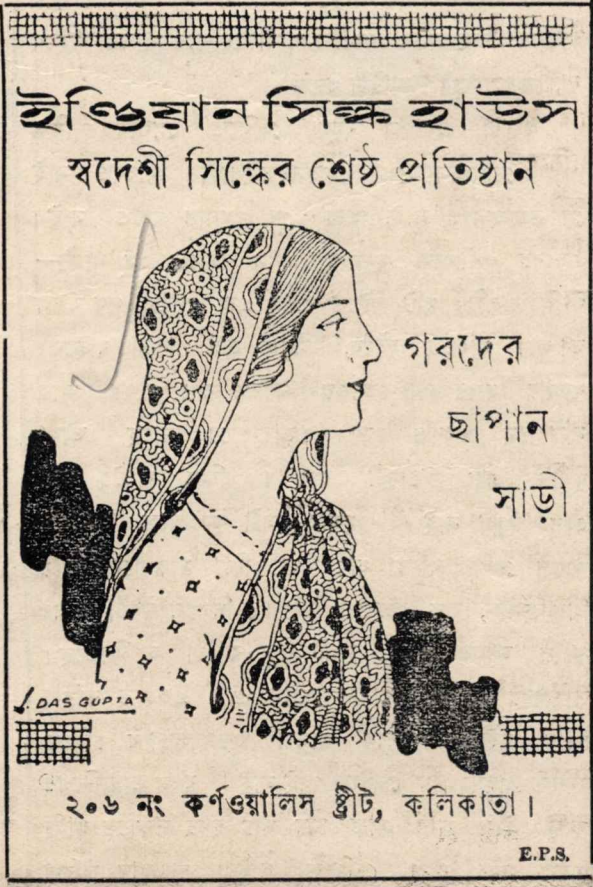 ইণ্ডিয়ান সিল্ক হাউস
স্বদেশী সিল্কের শ্রেষ্ঠ প্রতিষ্ঠান
গরদের
ছাপান
সাড়ী
J. DAS GUPTA
২০৬ নং কর্ণওয়ালিস ষ্ট্রীট, কলিকাতা।
E.P.S.